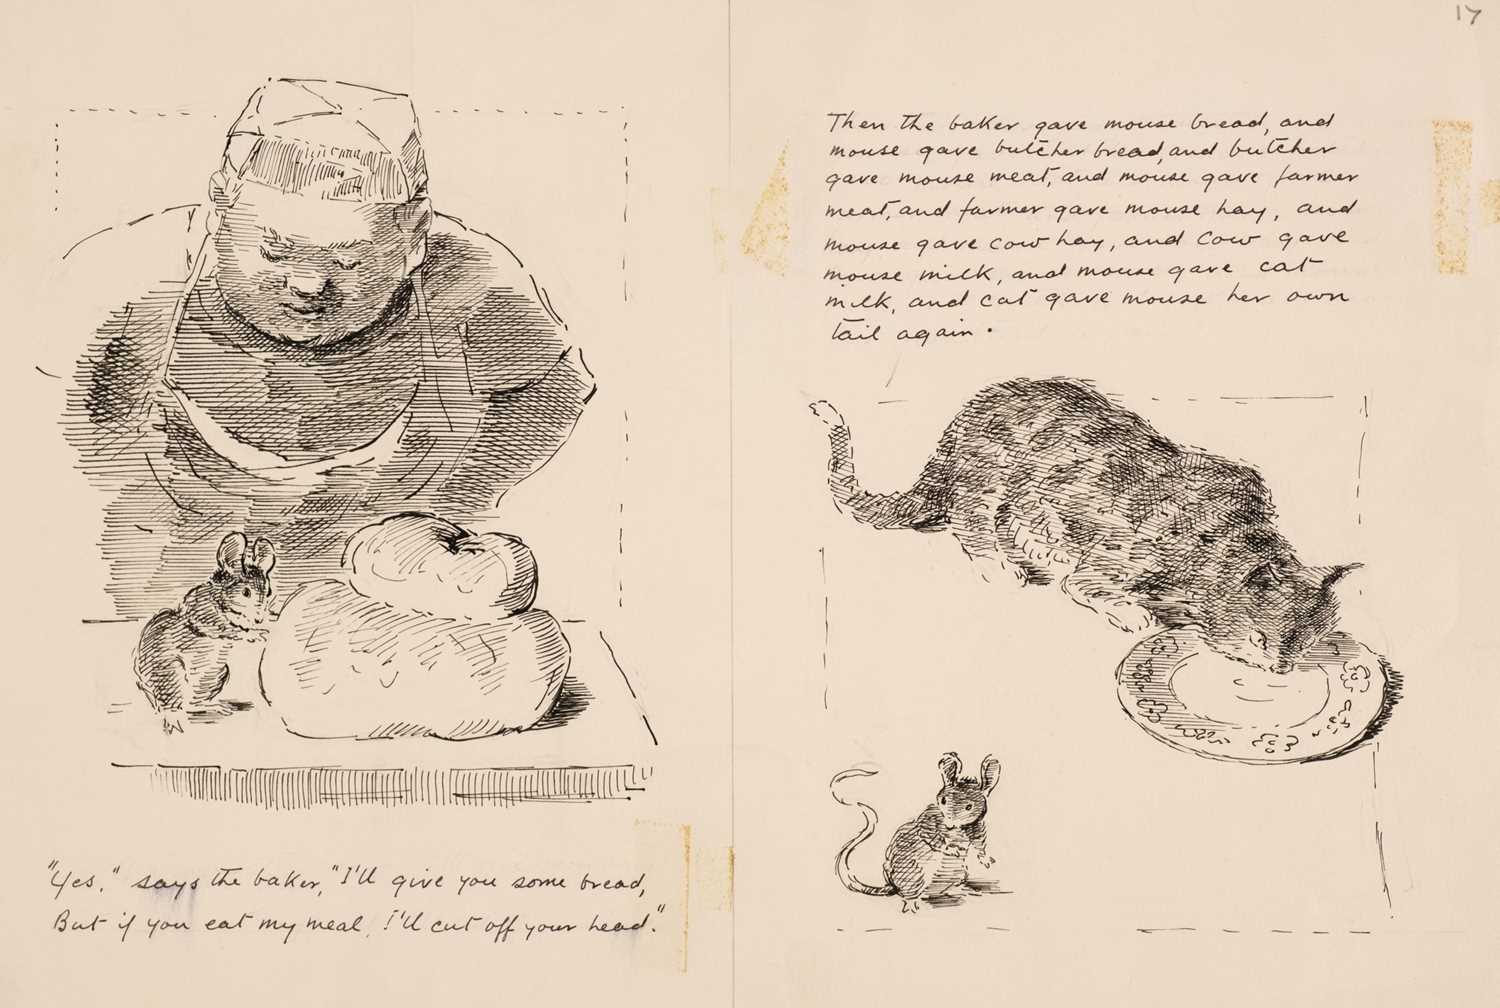 "Yes," says the baker, "I'll give you some bread,
But if you eat my meal, I'll cut off your head."
17
Then the baker gave mouse bread, and
mouse gave butcher bread, and butcher
gave mouse meat, and mouse gave farmer
meat, and farmer gave mouse hay, and
mouse gave cow hay, and cow gave
mouse milk, and mouse gave cat
milk, and cat gave mouse her own
tail again.